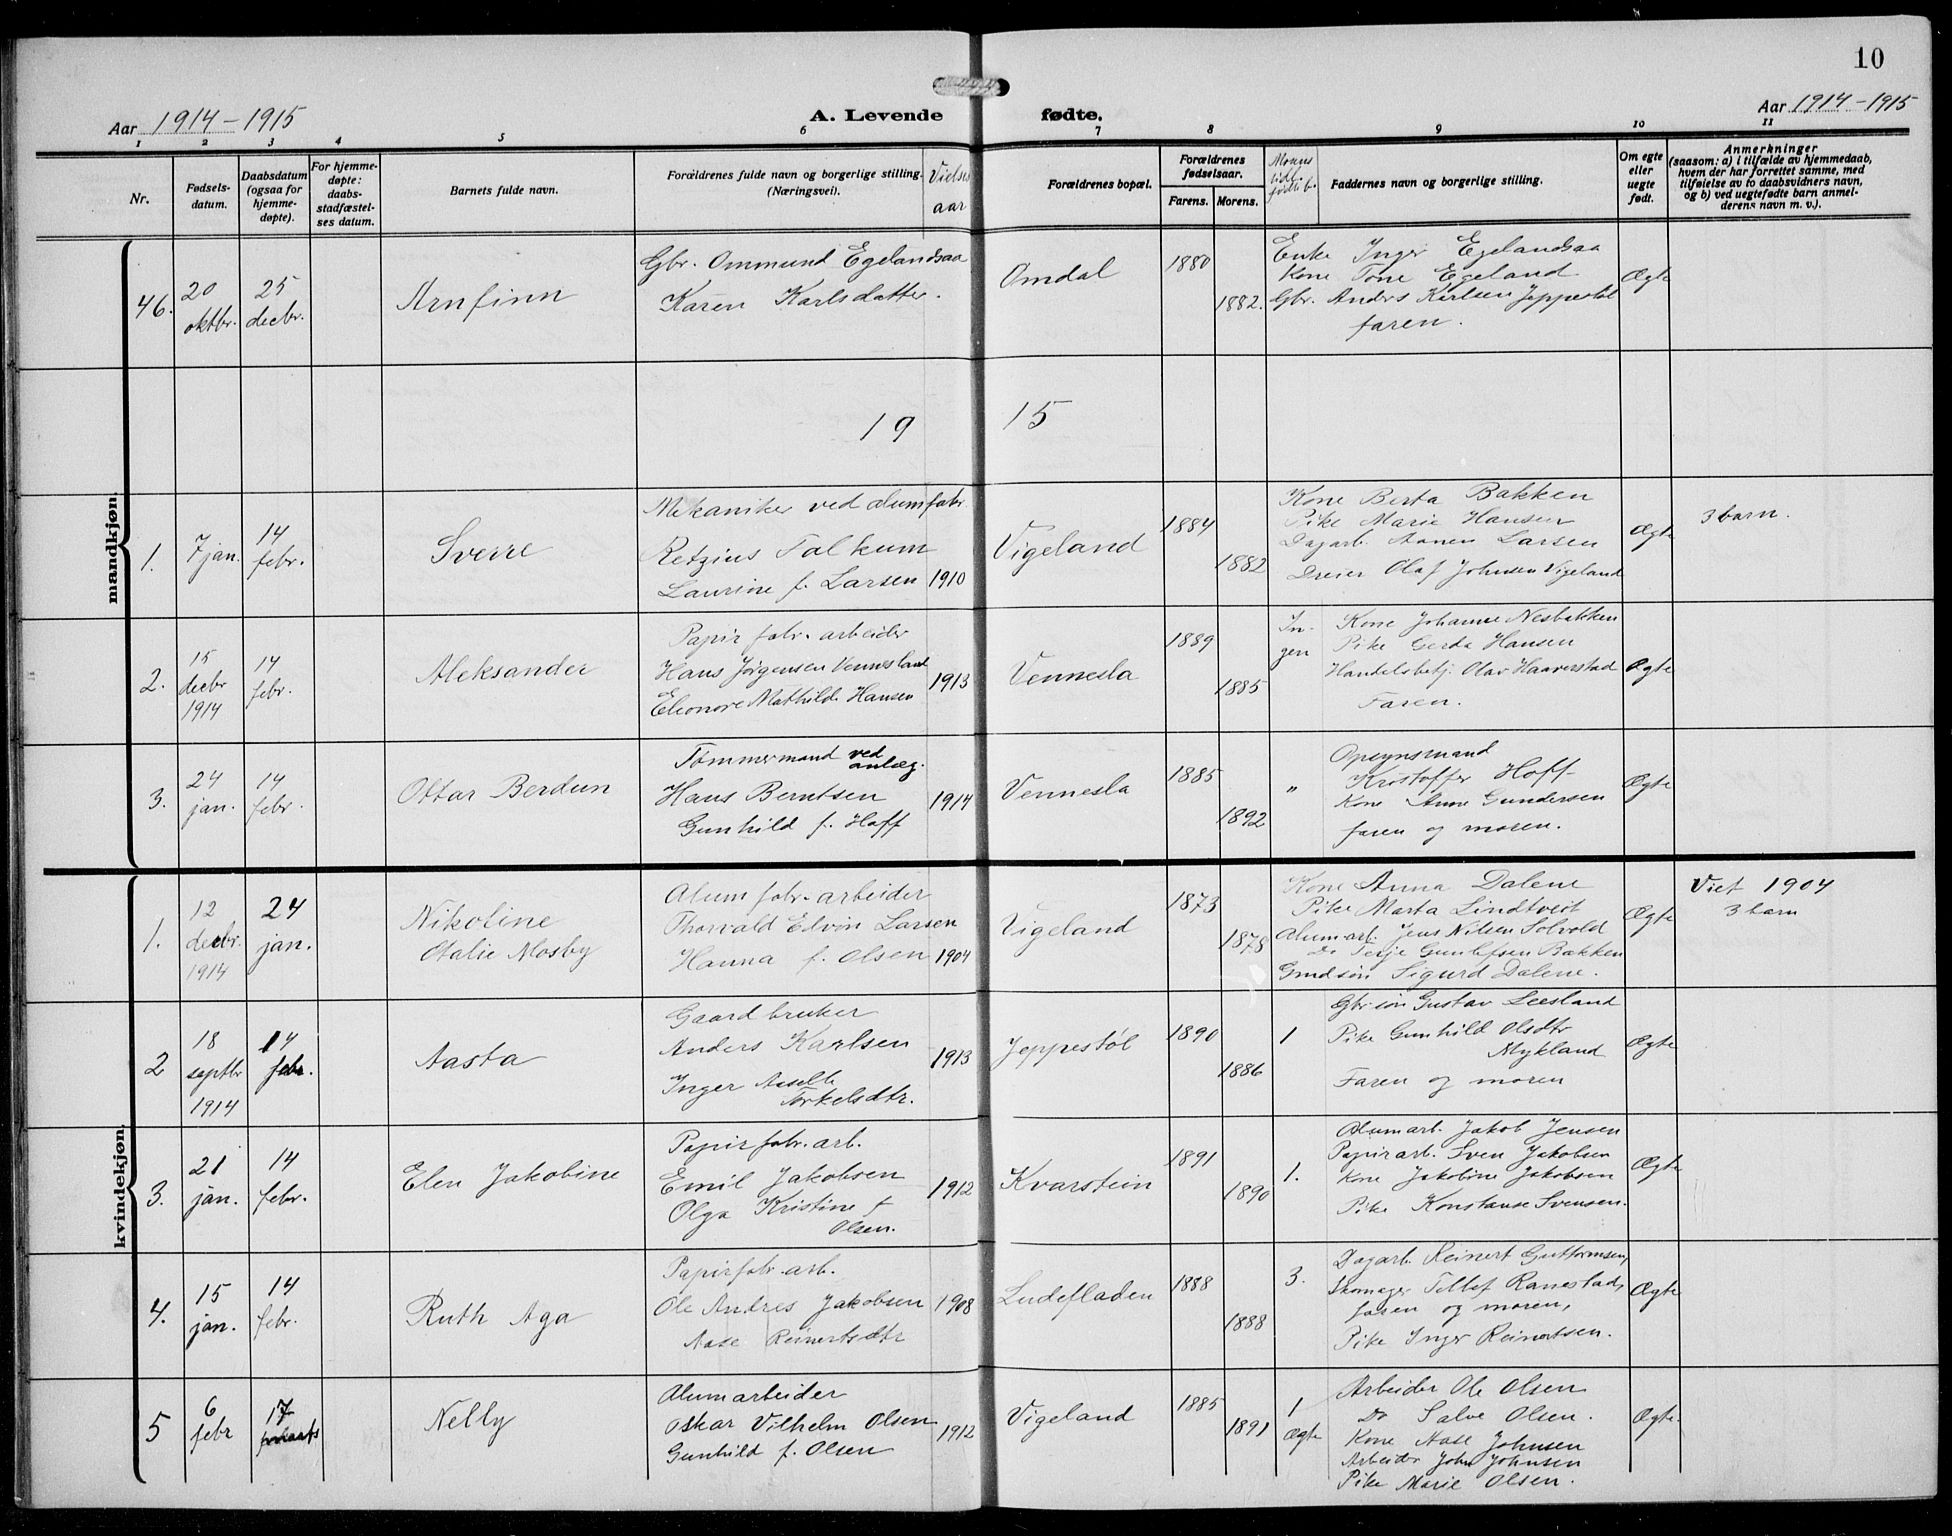 10
Aar 1914-1915
A. Levende fødte.
Aar 1914-1915
1 2 3 4 5 6 7 8 9 10 11
Nr.
Fødsels-
datum.
Daabsdatum
(ogsaa for
hjemme-
døpte).
For hjemme-
døpte:
daabs-
stadfæstel-
ses datum.
Barnets fulde navn.
Forældrenes fulde navn og borgerlige stilling.
(Næringsvei).
Vielses
aar
Forældrenes bopæl.
Forældrenes
fødselsaar.
Farens. Morens.
Morens
tidl.
fødte b.
Faddernes navn og borgerlige stilling.
Om egte
eller
uegte
født.
Anmerkninger
(saasom: a) i tilfælde av hjemmedaab,
hvem der har forrettet samme, med
tilføielse av to daabsvidners navn,
og b) ved uegtefødte barn anmel-
derens navn m. v.).
mandkjøn.
46.
20
oktbr.
25
decbr.
Arnfinn
Gbr. Ommund Egelandsaa
Karen Karlsdatter.
Omdal
1880
1882.
Enke Inger Egelandsaa
Kone Tone Egeland
Gbr. Anders Karlsen Jeppestøl
faren.
Ægte
19 15
1.
7 jan.
14
febr.
Sverre
Mekaniker ved alumfabr.
Retzius Talkum
Laurine f. Larsen
1910
Vigeland
1884
1882
Kone Berta Bakken
Pike Marie Hansen
Dagarb. Aanen Larsen
Dreier Olaf Johnsen Vigeland
Ægte
3 barn.
2.
15
decbr
1914
14
febr.
Aleksander
Papirfabr. arbeider
Hans Jørgensen Vennesland
Eleonore Mathilde Hansen
1913
Vennesla
1889
1885
In-
gen
Kone Johanne Nesbakken
Pike Gerda Hansen
Handelsbetj. Olav Haaverstad
Faren.
Ægte
3.
24
jan.
14
febr.
Ottar Berdun
Tømmermand ved
anlæg.
Hans Berntsen
Gunhild f. Hoff
1914
Vennesla
1885
1892
"
Opsynsmand
Kristoffer Hoff
Kone Anne Gundersen
faren og moren.
Ægte
kvindekjøn.
1.
12
decbr.
1914
24
jan.
Nikoline
Otalie Mosby
Alumfabr. arbeider
Thorvald Edvin Larsen
Hanna f. Olsen
1904
Vigeland
1873
1878
Kone Anna Dalene
Pike Marta Lindtveit
Alumarb. Jens Nilsen Solvold
Do Terje Gunlefsen Bakken
Grndsøn Sigurd Dalene.
Ægte
Viet 1904
3 barn
2
18
septbr
1914
14
febr.
Aasta
Gaardbruker
Anders Karlsen
Inger Aaselle
Torkelsdtr.
1913
Jeppestøl
1890
1886
1
Gbr.søn Gustav Leesland
Pike Gunhild Olsdtr
Mykland
Faren og moren
Ægte
3.
21
jan.
14
febr.
Elen Jakobine
Papirfabr. arb.
Emil Jakobsen
Olga Kristine f
Olsen.
1912
Kvarstein
1891
1890
1.
Alumarb. Jakob Jensen
Papirarb. Sven Jakobsen
Kone Jakobine Jakobsen
Pike Konstanse Svensen.
Ægte
4.
15
jan.
14
febr.
Ruth Aga
Papirfabr. arb.
Ole Andres Jakobsen
Aase Reinertsdtr
1908
Ludefladen
1888
1888
3.
Dagarb. Reinert Guttormsen,
Skomager Tellef Ranestad,
faren og moren,
Pike Inger Reinertsen.
Ægte
5
6
febr
17
Nelly
Alumarbeider
Oskar Vilhelm Olsen
Gunhild f. Olsen
1912
Vigeland
1885
1891
1
Ægte
Arbeider Ole Olsen
Do Salve Olsen.
Kone Aase Johnsen
Arbeider John Johnsen
Pike Marie Olsen.
Ægte.